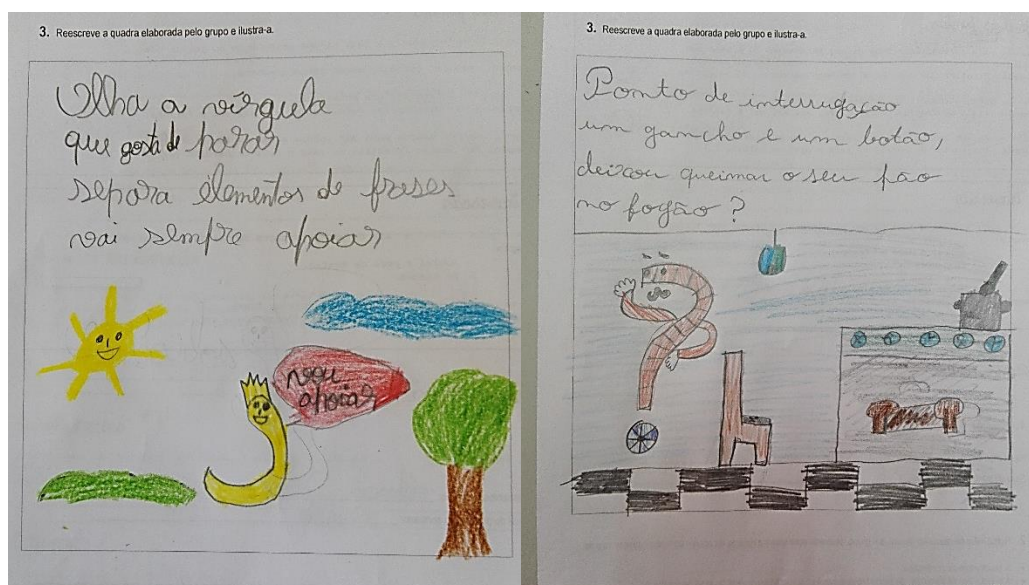 3. Reescreve a quadra elaborada pelo grupo e ilustra-a.
Olha a vírgula
que gosta de parar
separa elementos de frases
vai sempre apoiar
vou
apoiar
3. Reescreve a quadra elaborada pelo grupo e ilustra-a.
Ponto de interrugação
um gancho e um botão,
deixou queimar o seu pão
no fogão?